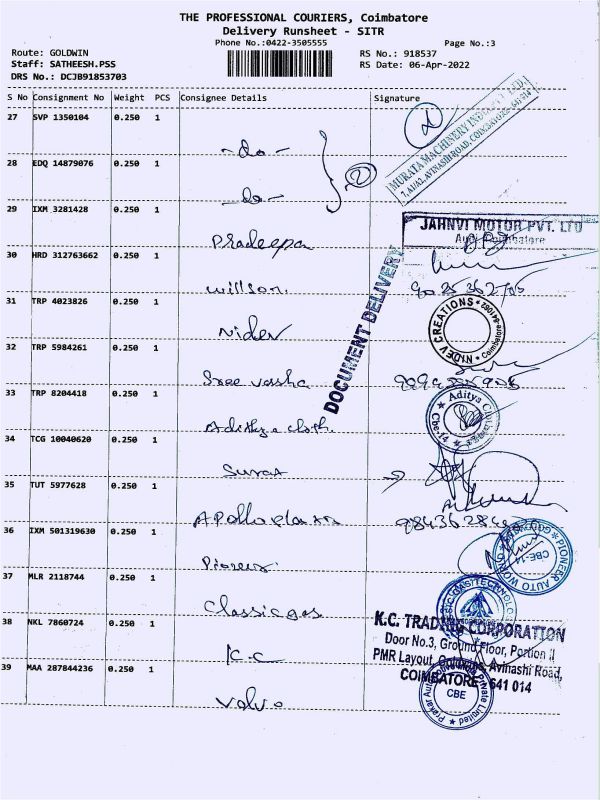 THE PROFESSIONAL COURIERS, Coimbatore
Delivery Runsheet - SITR
Phone No.:0422-3505555 Page No.:3
Route: GOLDWIN RS No.: 918537
Staff: SATHEESH.PSS RS Date: 06-Apr-2022
DRS No.: DCJB91853703
S No Consignment No Weight PCS Consignee Details Signature
27 SVP 1350104 0.250 1
- do -
MURATA MACHINERY INDIA PVT. LTD.
AVINASHI ROAD, COIMBATORE
28 EDQ 14879076 0.250 1
- do -
2
29 IXM 3281428 0.250 1
Pradeepa
JAHNVI MOTOR PVT. LTD
Audi Coimbatore
30 HRD 312763662 0.250 1
Willson.
DOCUMENT DELIVERY
31 TRP 4023826 0.250 1
Nidev
NIDEV CREATIONS
Coimbatore-641062
32 TRP 5984261 0.250 1
Sree varsha
33 TRP 8204418 0.250 1
Adithya cloth.
Aditya
Cbe-14
34 TCG 10040620 0.250 1
Surat
35 TUT 5977628 0.250 1
Apollo
36 IXM 501319630 0.250 1
PIONEER AUTO WORLD
CBE-14
37 MLR 2118744 0.250 1
Classic gas
38 NKL 7860724 0.250 1
K.C
K.C. TRADING CORPORATION
Door No.3, Ground Floor, Portion II
PMR Layout, Avinashi Road,
COIMBATORE - 641 014
39 MAA 287844236 0.250 1
Volvo
Private Limited
CBE